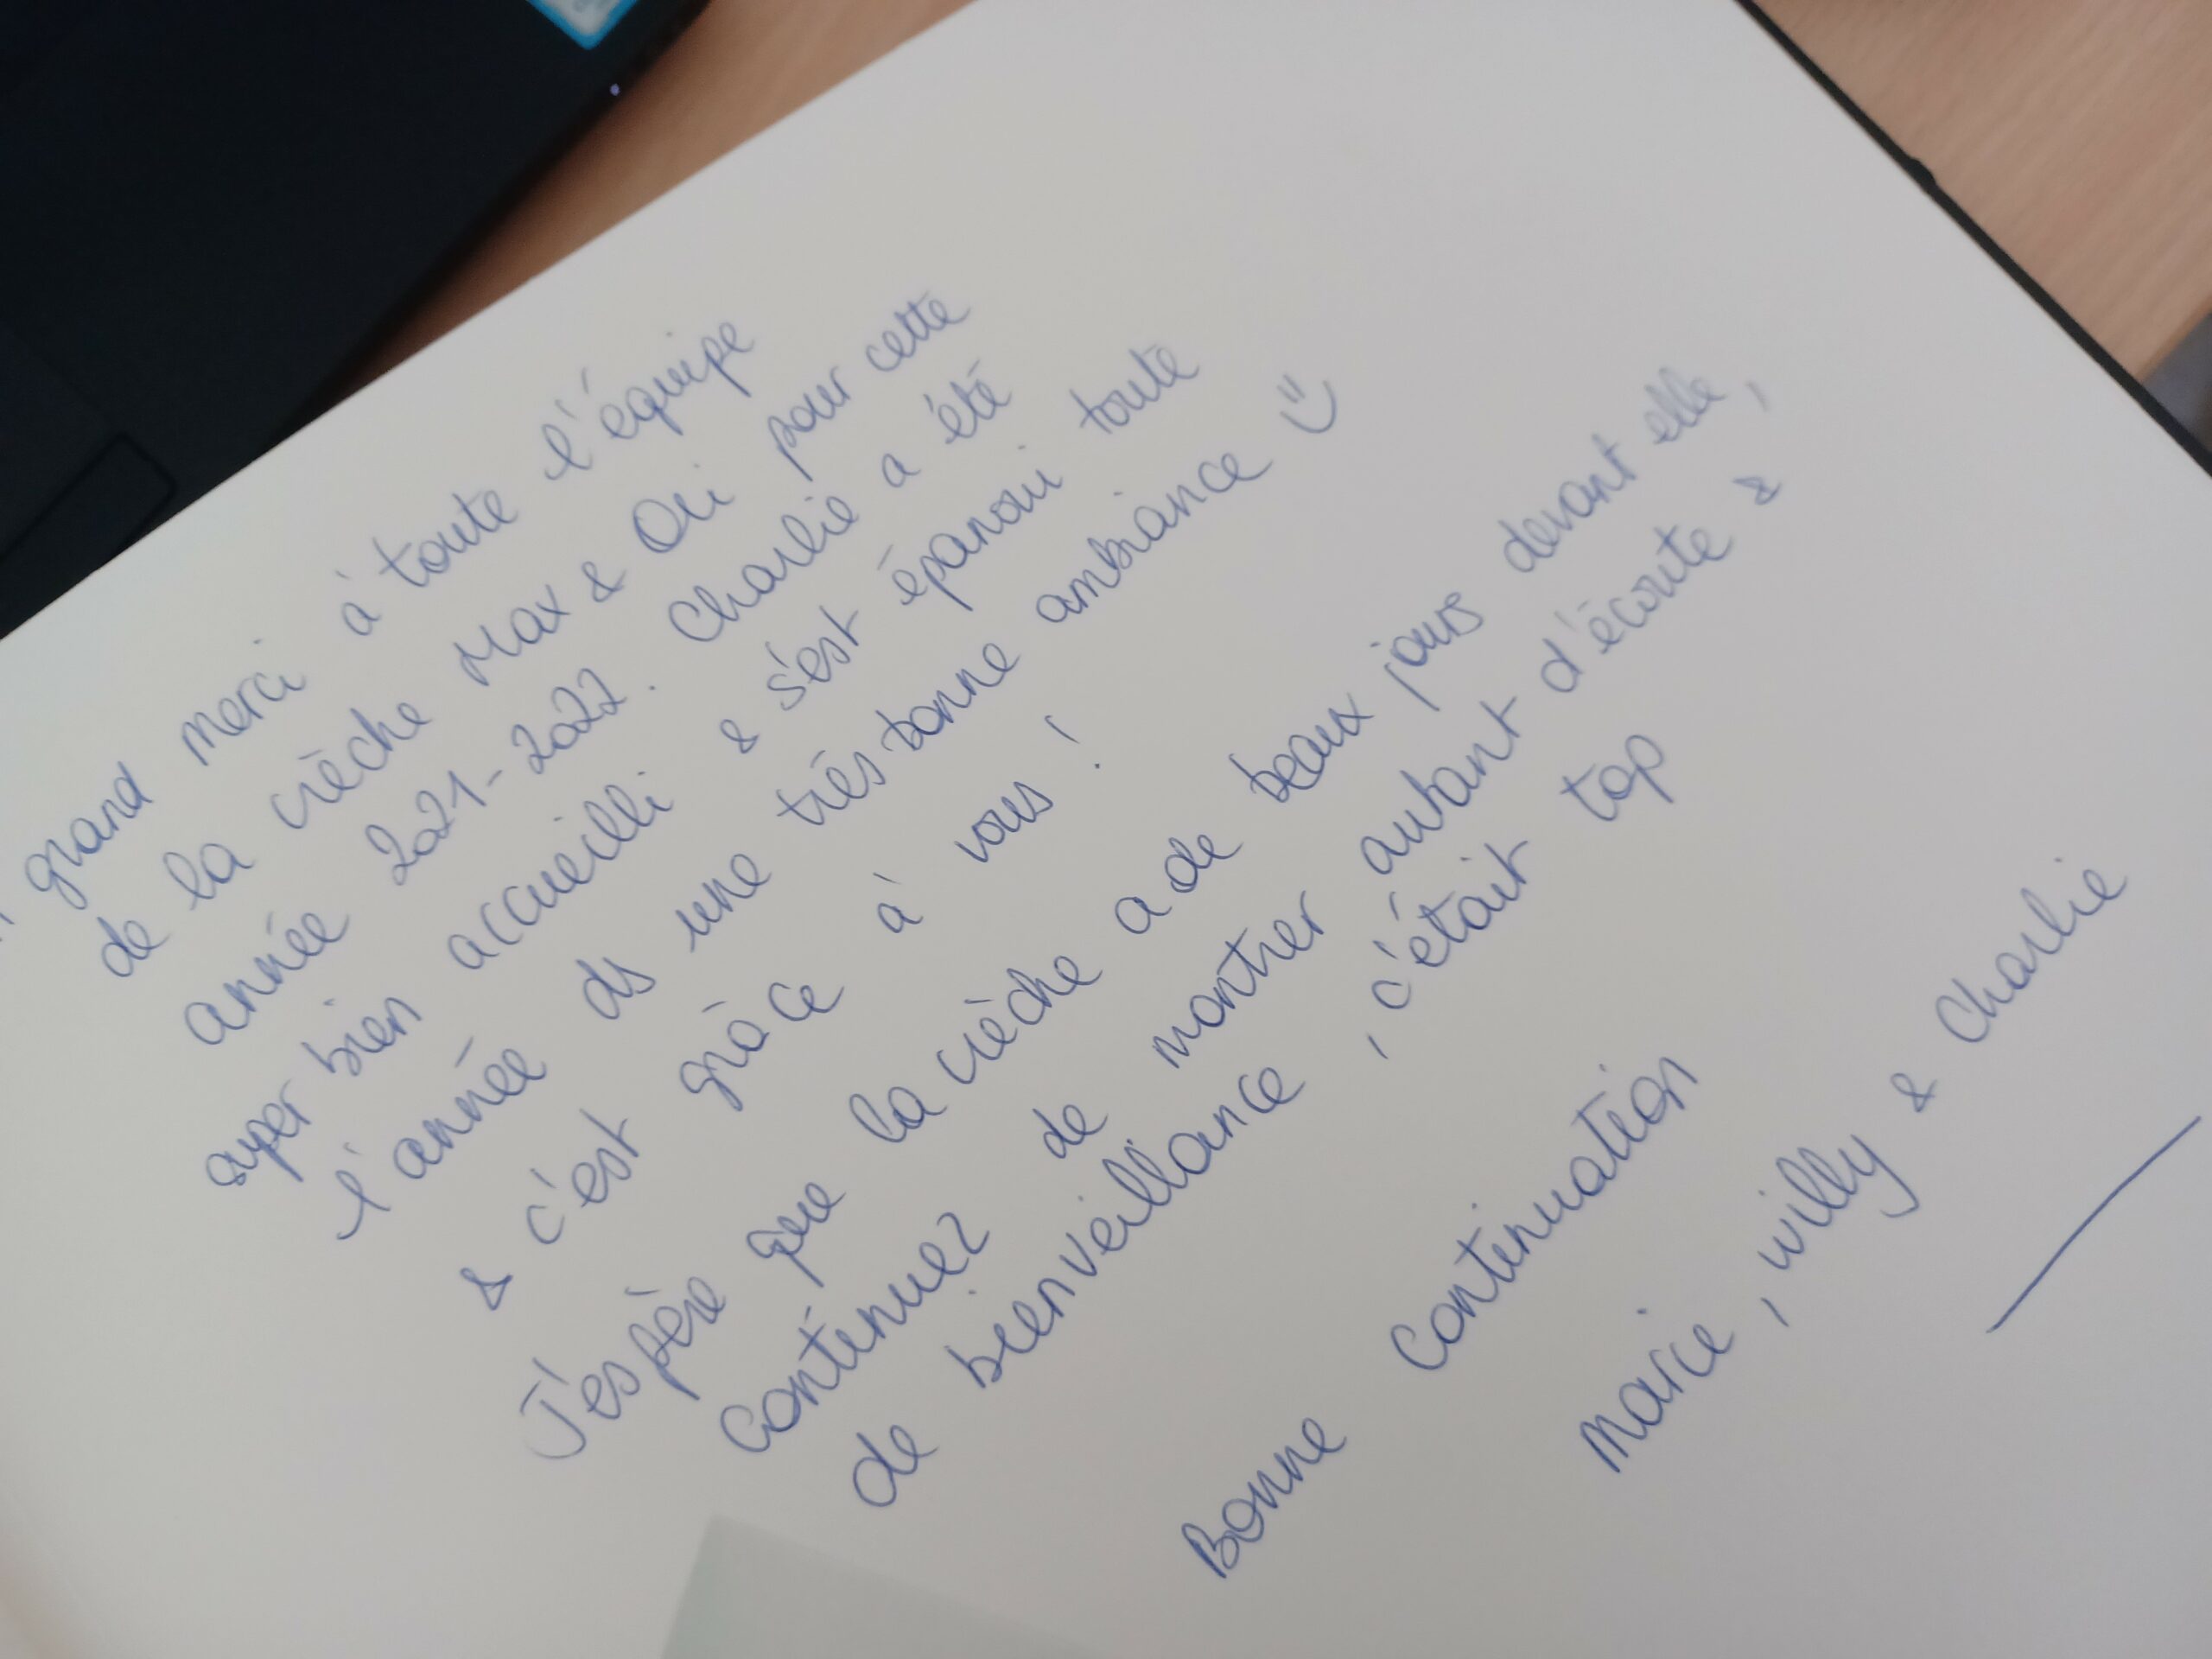 grand merci à toute l'équipe
de la crèche Max & Oli pour cette
année 2021-2022. Charlie a été
super bien accueilli & s'est épanoui toute
l'année ds une très bonne ambiance
& c'est grâce à vous !
J'espère que la crèche a de beaux jours devant elle,
continuez de montrer autant d'écoute &
de bienveillance, c'était top
Bonne continuation
Marie, Willy & Charlie